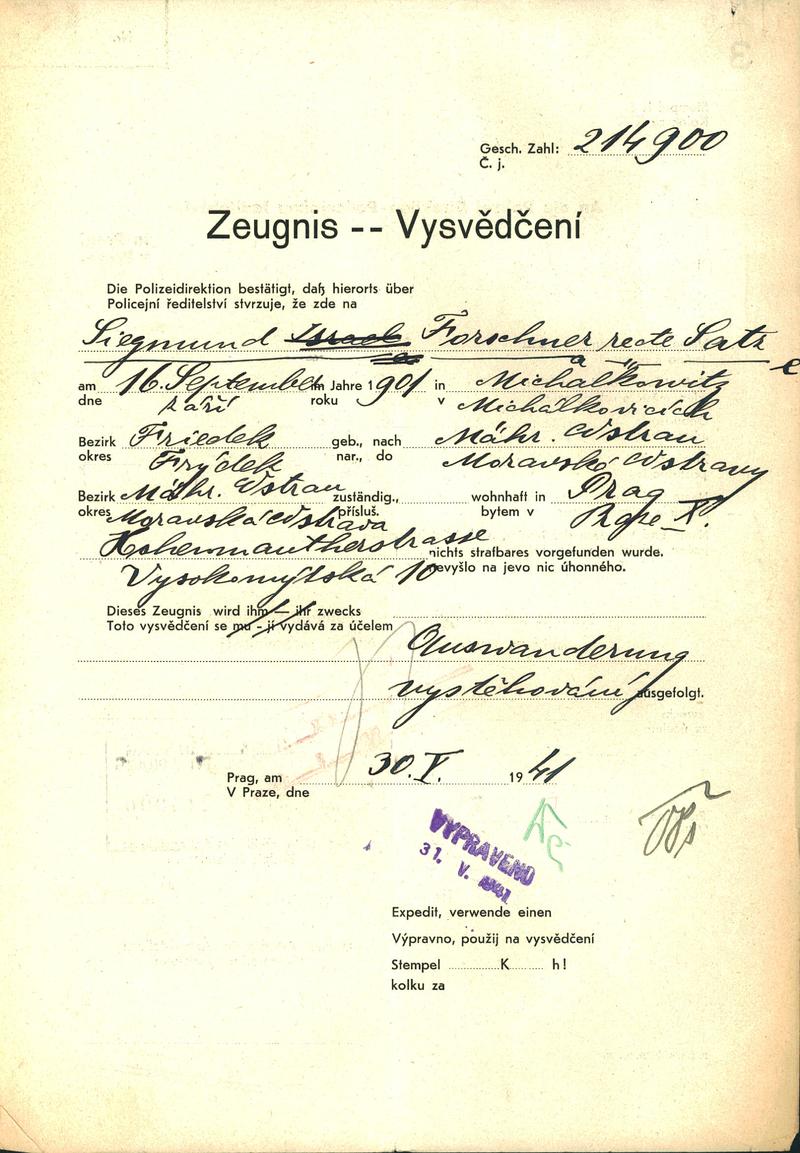 Gesch. Zahl: 214900
Č. j.
Zeugnis -- Vysvědčení
Die Polizeidirektion bestätigt, daß hierorts über
Policejní ředitelství stvrzuje, že zde na
Siegmund Israel Forschner recte Satz
am 16. September im Jahre 1901 in Michalkowitz
dne září roku v Michálkovicích
Bezirk Friedek geb., nach Mähr. Ostrau
okres Frýdek nar., do Moravské Ostravy
Bezirk Mähr. Ostrau zuständig., wohnhaft in Prag
okres Moravská Ostrava přísluš. bytem v Praze X.
Hohenmautherstrasse nichts strafbares vorgefunden wurde.
Vysokomýtská 10 nevyšlo na jevo nic úhonného.
Dieses Zeugnis wird ihm — ihr zwecks
Toto vysvědčení se mu - jí vydává za účelem
Auswanderung
vystěhování ausgefolgt.
Prag, am 30. V. 1941
V Praze, dne
VYPRAVENO
31. V. 1941
Expedit, verwende einen
Výpravno, použij na vysvědčení
Stempel ............K........ h!
kolku za